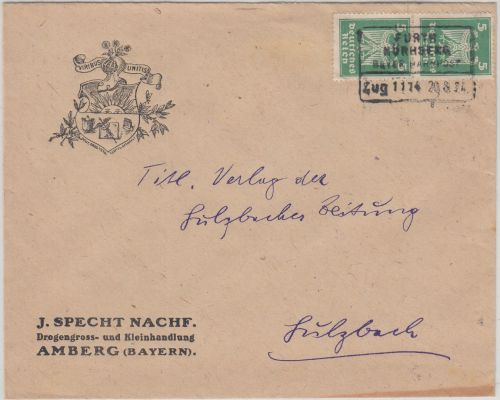 VIRIBUS UNITIS
Deutsches Reich
5 5
FURTH
NÜRNBERG
BAYER. BAHNPOST
Zug 1174 20.8.24.
Titl. Verlag der
Sulzbacher Zeitung
Sulzbach
J. SPECHT NACHF.
Drogengross- und Kleinhandlung
AMBERG (BAYERN).